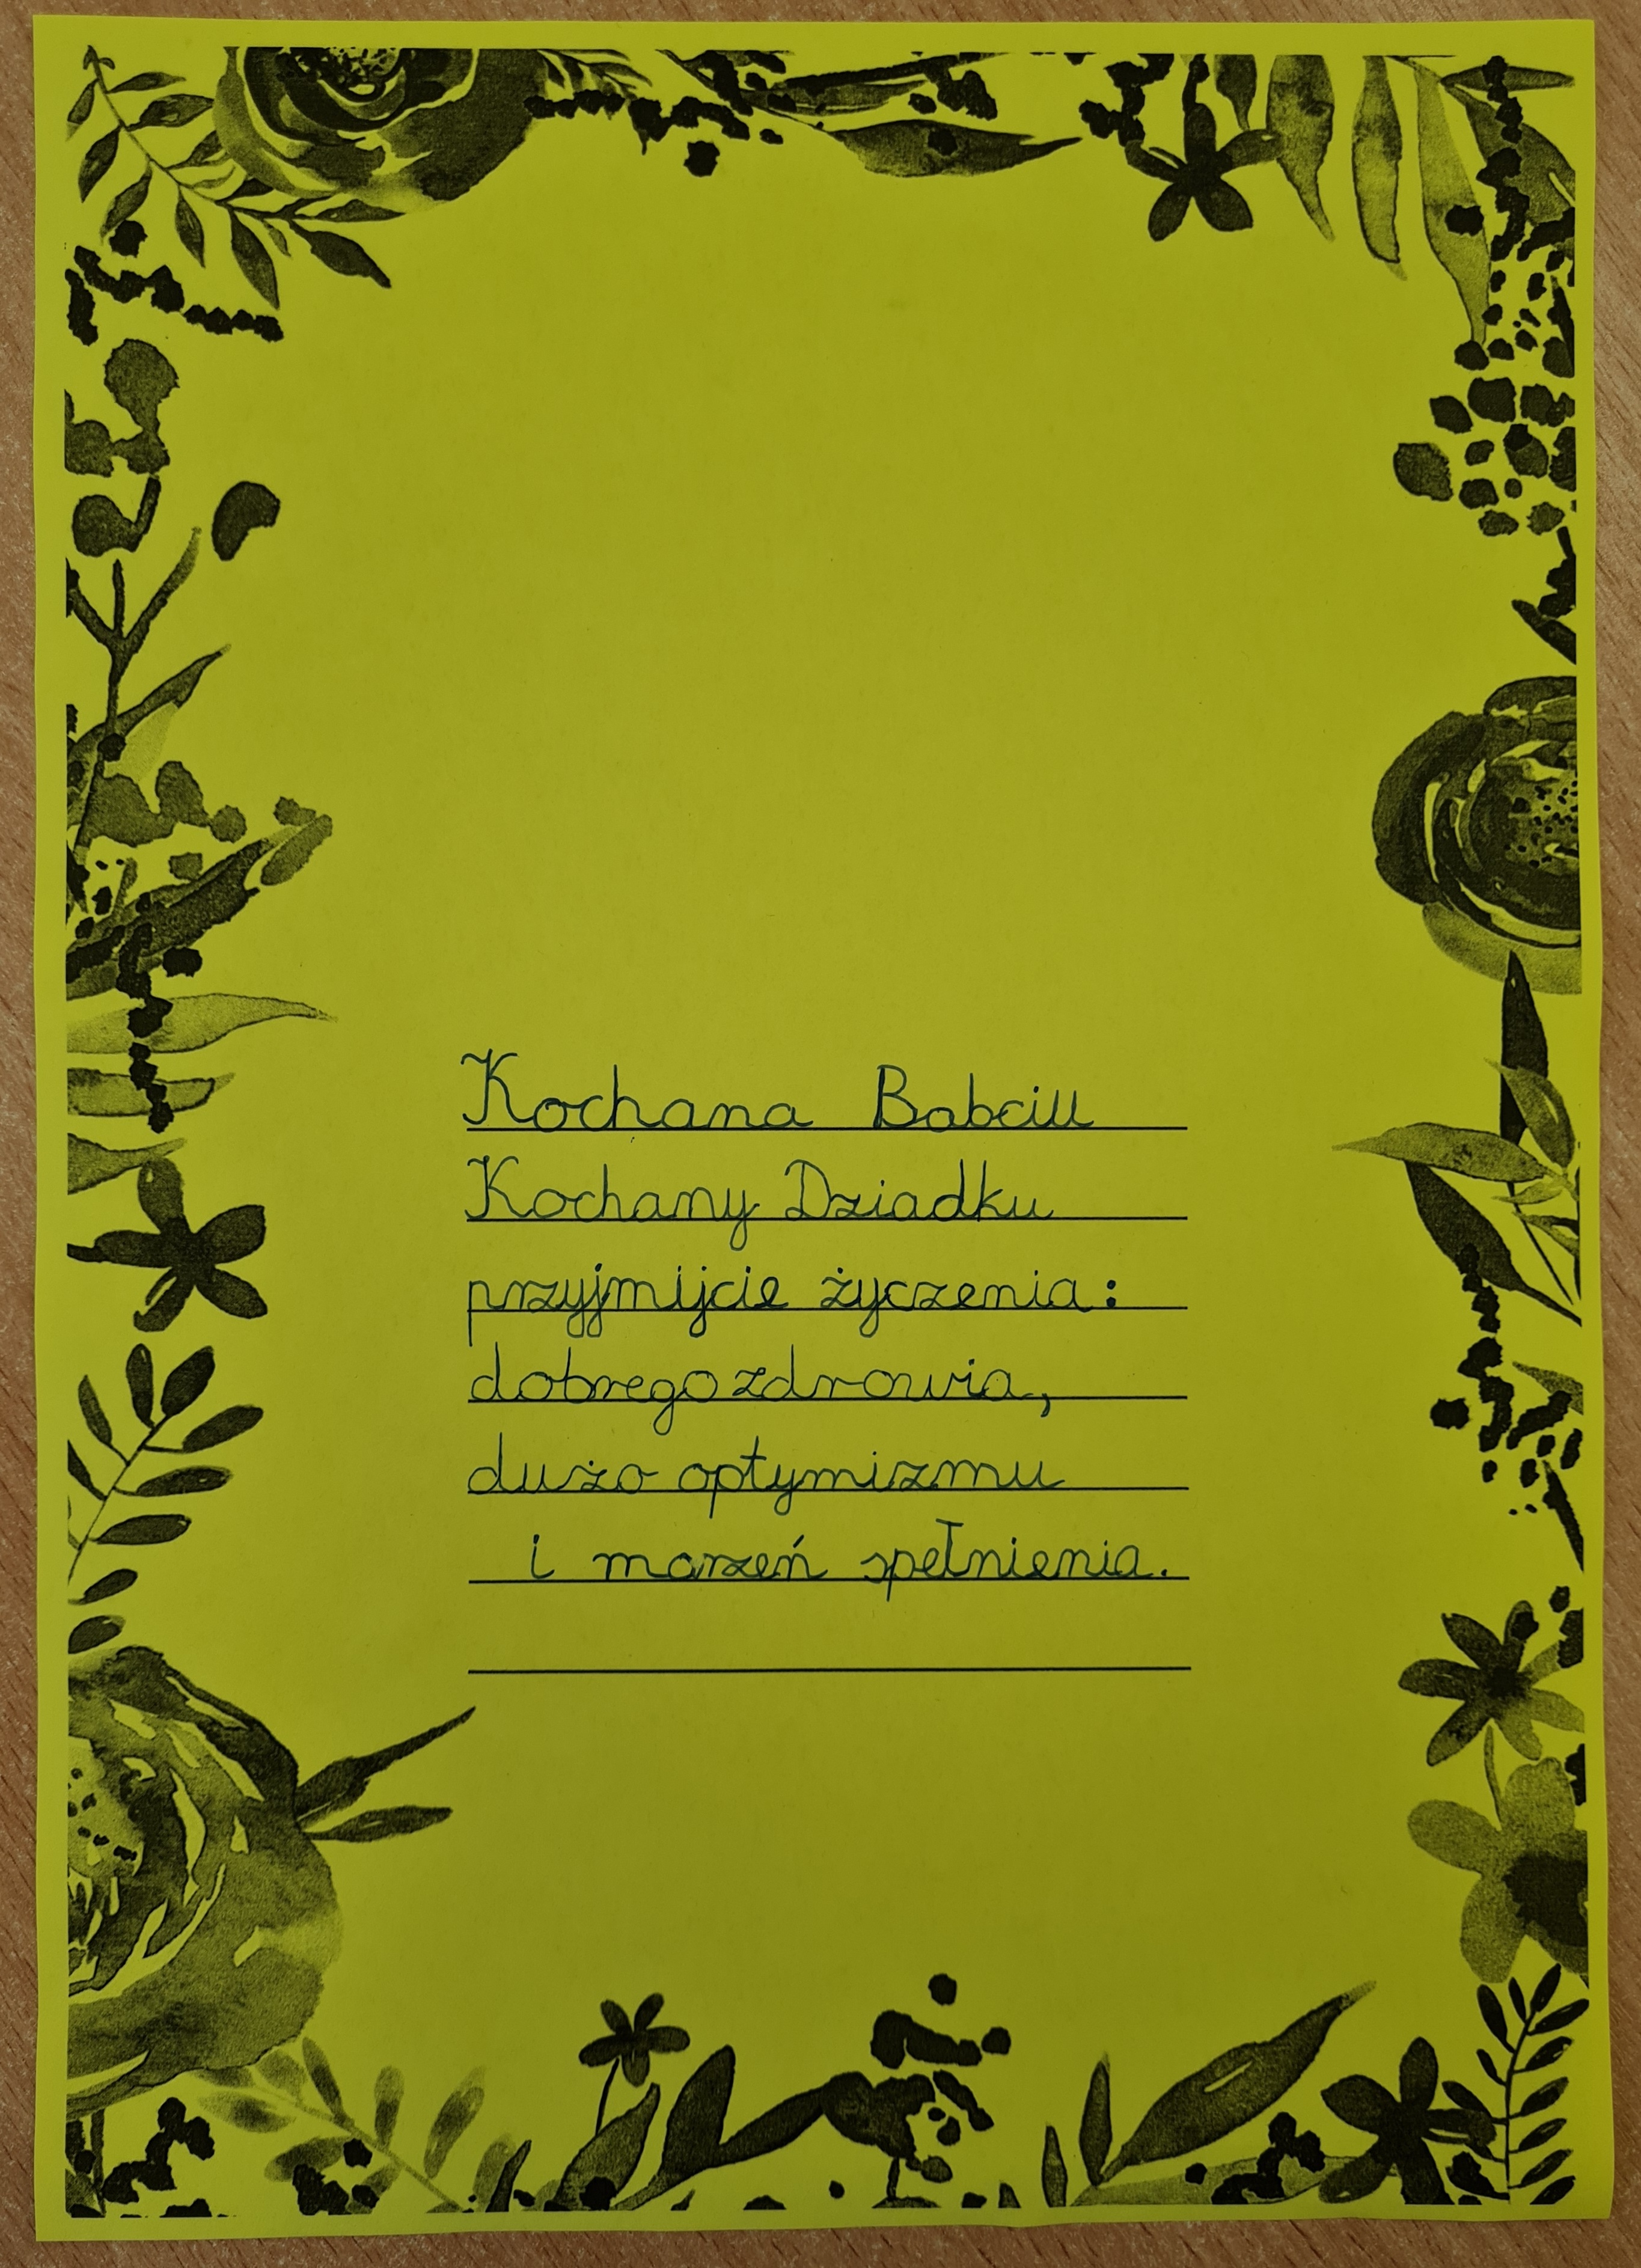 Kochana Babciu
Kochany Dziadku
przyjmijcie życzenia:
dobrego zdrowia,
dużo optymizmu
i marzeń spełnienia.